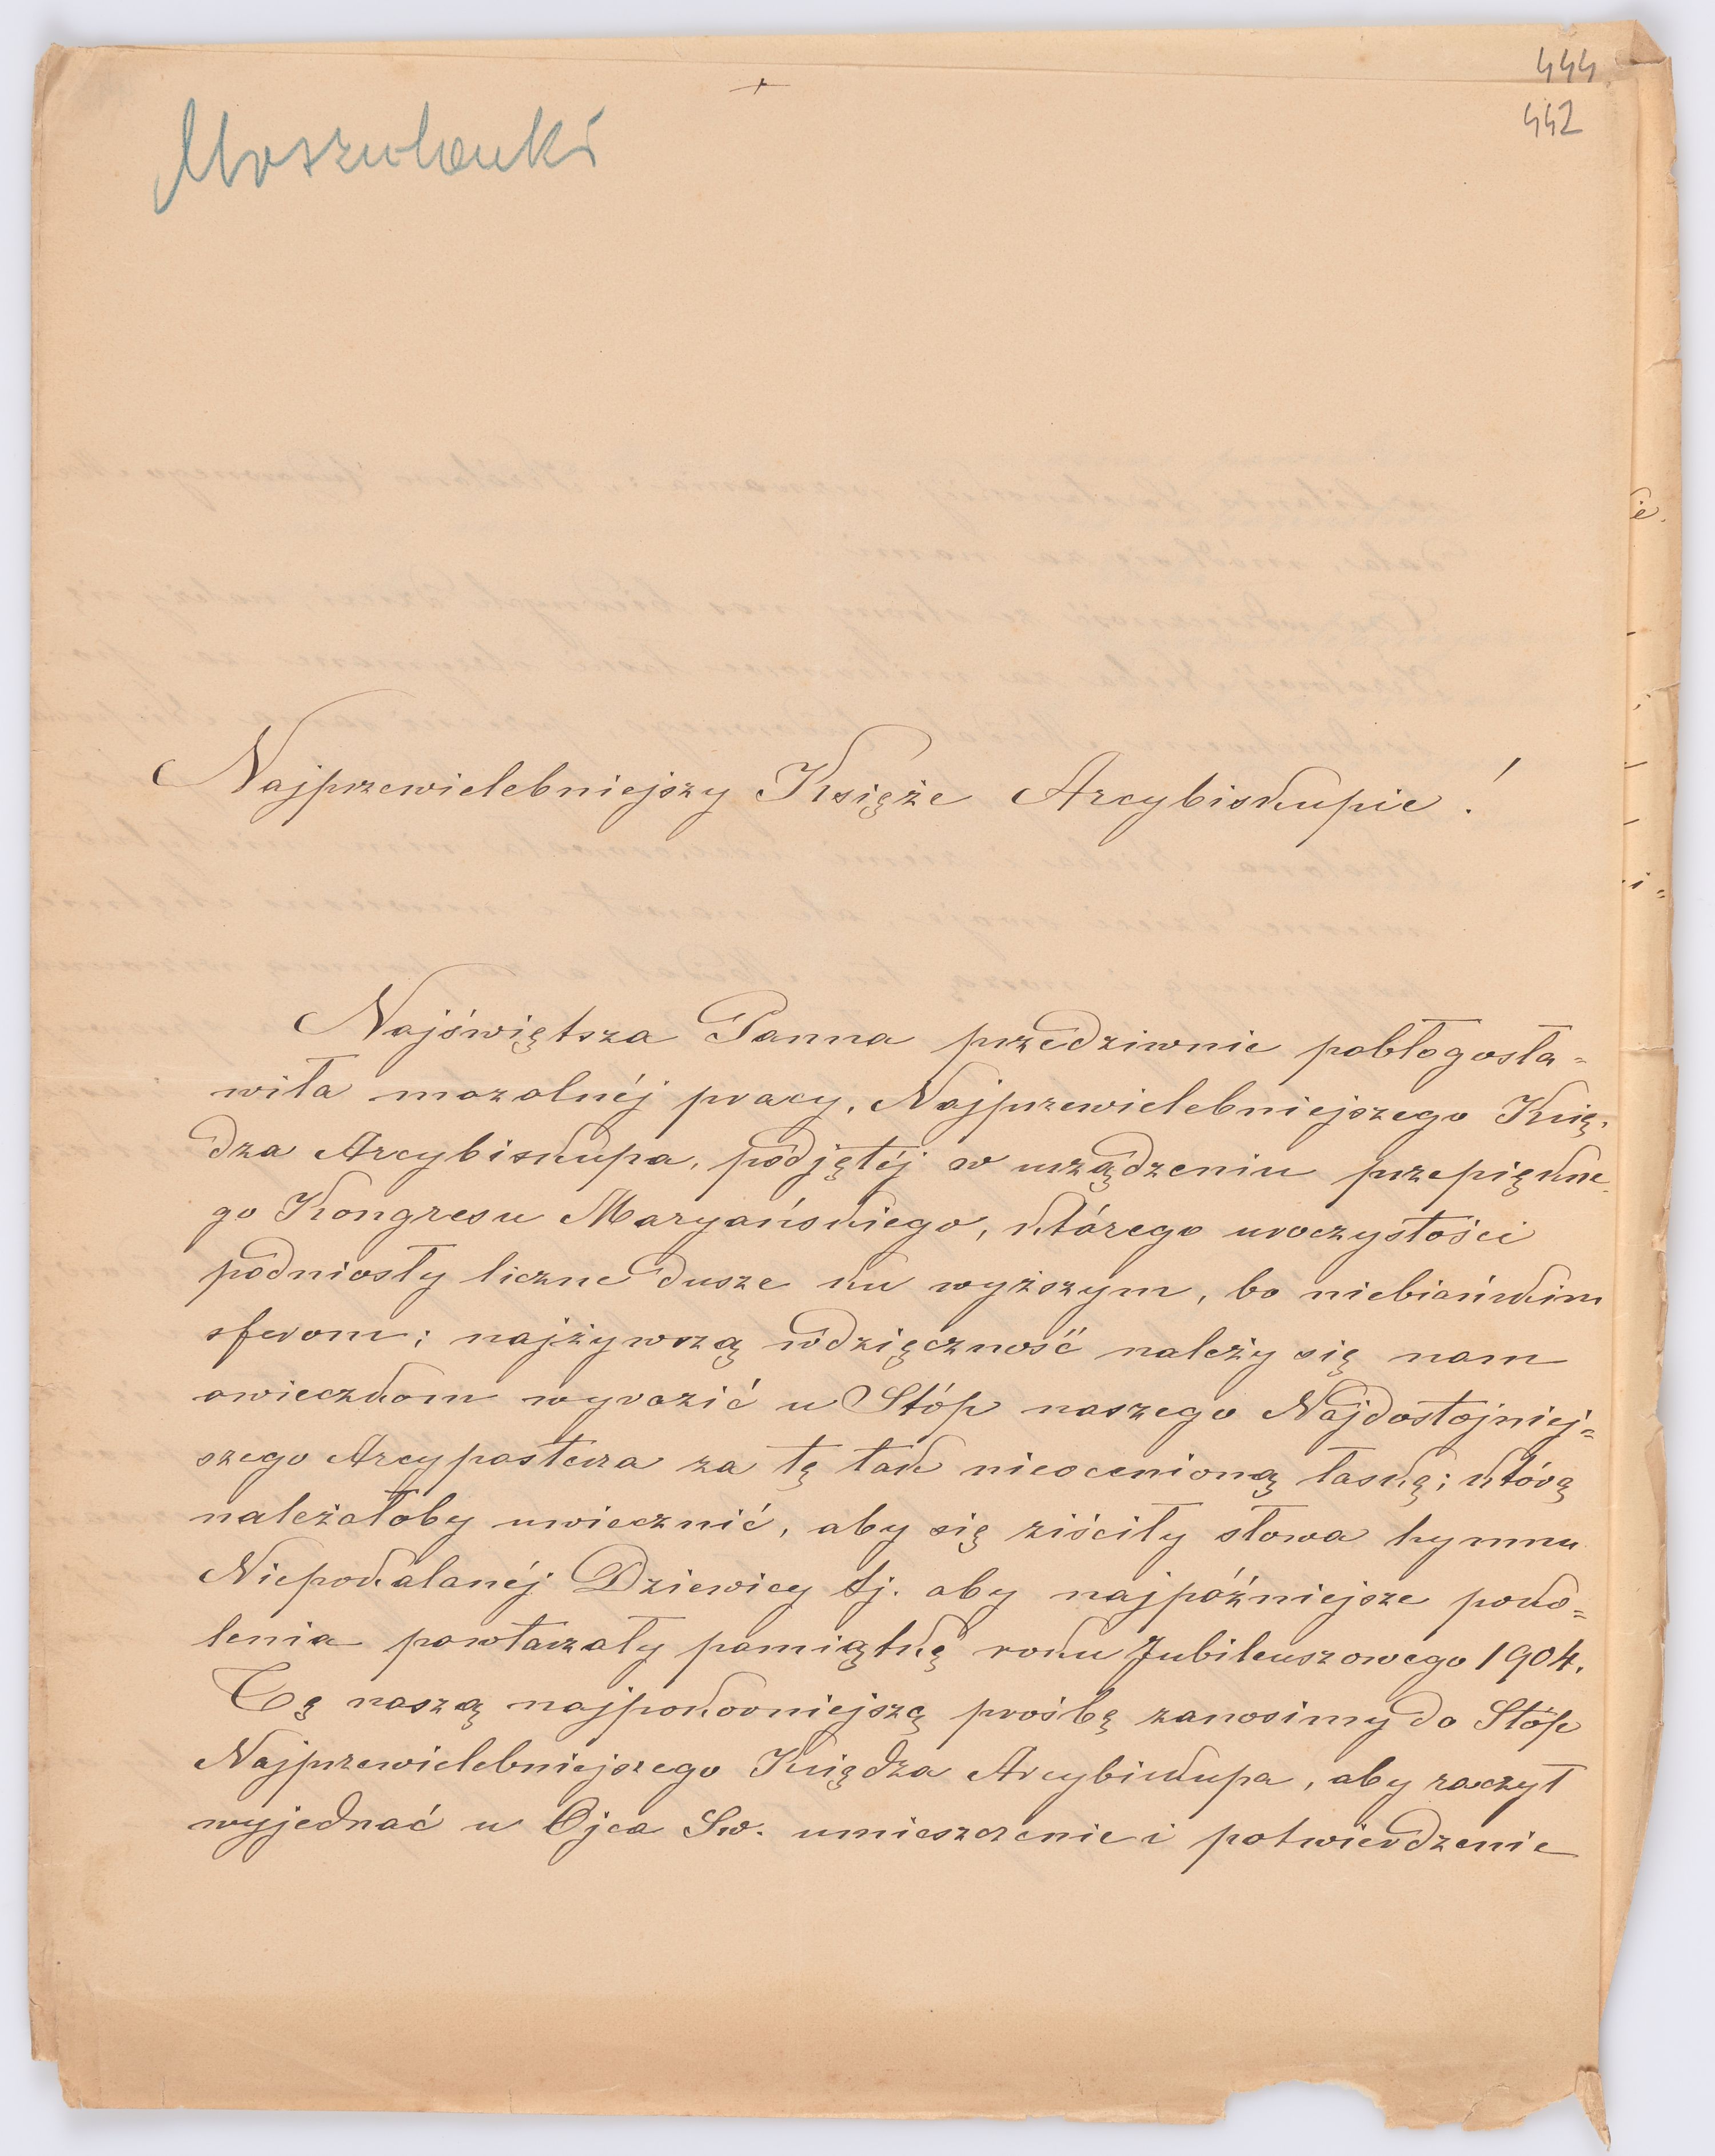 444
442
+
Najprzewielebniejszy Księże Arcybiskupie!
Najświętsza Panna przedziwnie pobłogosła=
wiła mozolnéj pracy, Najprzewielebniejszego Księ,
dza Arcybiskupa, podjętéj w urządzeniu przepiękne,
go Kongresu Maryańskiego, którego uroczystości
podniosły liczne dusze ku wyższym, bo niebiańskim
sferom; najżywszą wdzięczność należy się nam
owieczkom wyrazić u Stóp naszego Najdostojniej=
szego Arcypasterza za tę tak nieocenioną łaskę; którą
należałoby uwiecznić, aby się ziściły słowa hymnu
Niepokalanéj Dziewicy tj. aby najpóźniejsze poko=
lenia powtarzały pamiątkę roku Jubileuszowego 1904.
Tę naszą najpokorniejszą prośbę zanosimy do Stóp
Najprzewielebniejszego Księdza Arcybiskupa, aby raczył
wyjednać u Ojca Św. umieszczenie i potwierdzenie